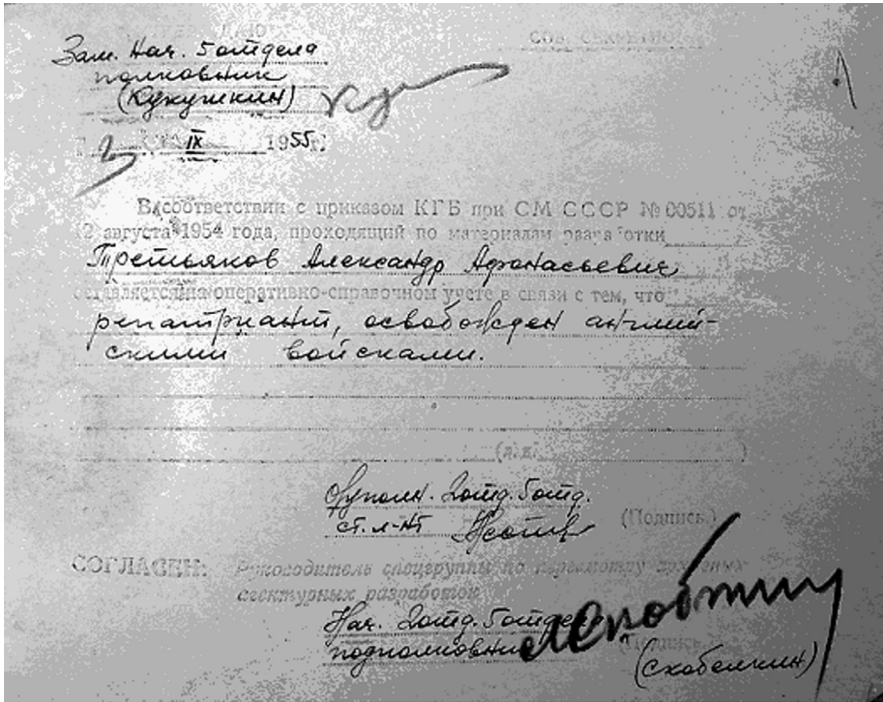 СОВ. СЕКРЕТНО
Зам. Нач. 5 отдела
полковник
(Кукушкин)
3 IX 1955 г.
В соответствии с приказом КГБ при СМ СССР № 00511 от
12 августа 1954 года, проходящий по материалам разработки
Третьяков Александр Афанасьевич
оставляется на оперативно-справочном учете в связи с тем, что
репатриант, освобожден англий-
скими войсками.
Оуполн. 2 отд. 5 отд.
ст. л-нт (Подпись)
СОГЛАСЕН: Руководитель спецгруппы по пересмотру архивных
агентурных разработок
Нач. 2 отд. 5 отдела
подполковник (Подпись)
(Скобелкин)